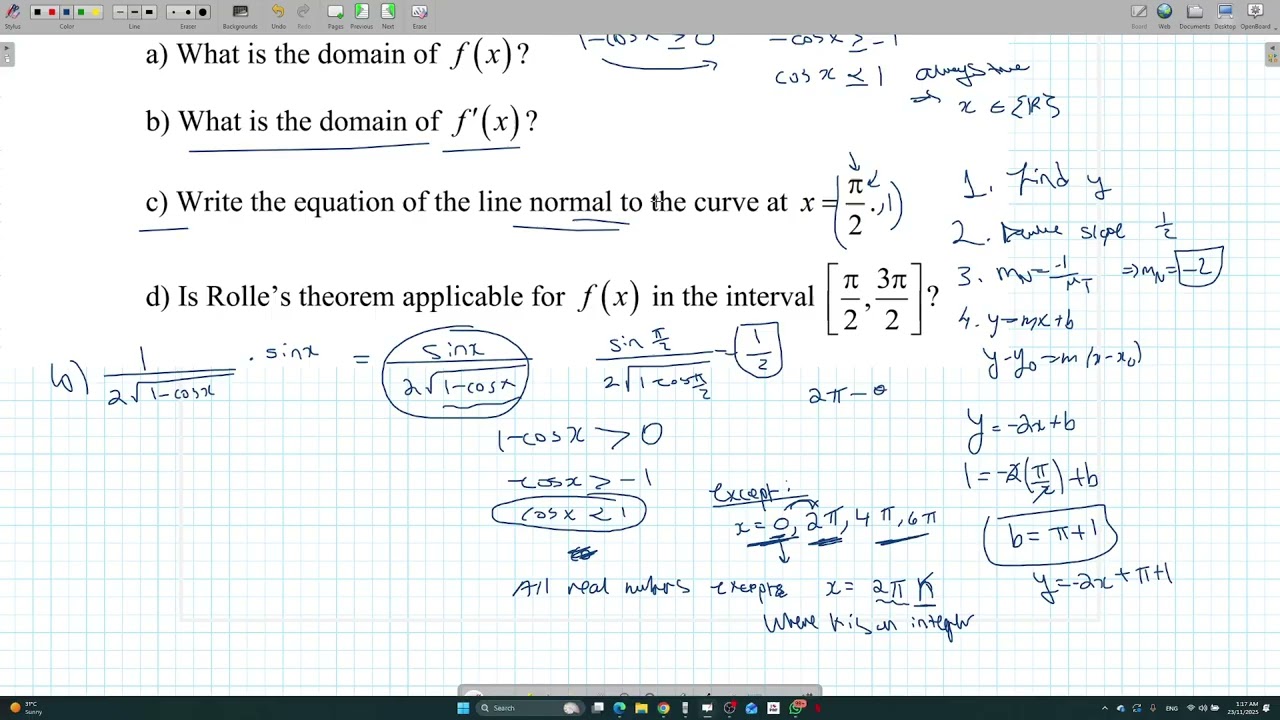 Stylus Color Line Eraser Backgrounds Undo Redo Pages Previous Next Erase Board Web Documents Desktop OpenBoard
1-cosx ≥ 0 -cosx ≥ -1
a) What is the domain of f(x)?
cosx ≤ 1 always true
⇒ x ∈ {R}
b) What is the domain of f′(x)?
c) Write the equation of the line normal to the curve at x = (π/2., 1)
1. find y
2. slope 1/2
3. mN = -1/MT ⇒ mN = -2
d) Is Rolle's theorem applicable for f(x) in the interval [π/2, 3π/2]?
4. y=mx+b
y-y0=m(x-x0)
b) 1/(2√(1-cosx)) · sinx = sinx/(2√(1-cosx)) sin π/2 / (2√(1-cos π/2)) = 1/2
2π-θ
y=-2x+b
1-cosx > 0
1=-2(π/2)+b
-cosx > -1
except:
cosx < 1
x=0, 2π, 4π, 6π
b=π+1
y=-2x+π+1
All real numbers except x= 2πK
where K is an integer
31°C
Sunny
Search
99+
ENG
1:17 AM
23/11/2025